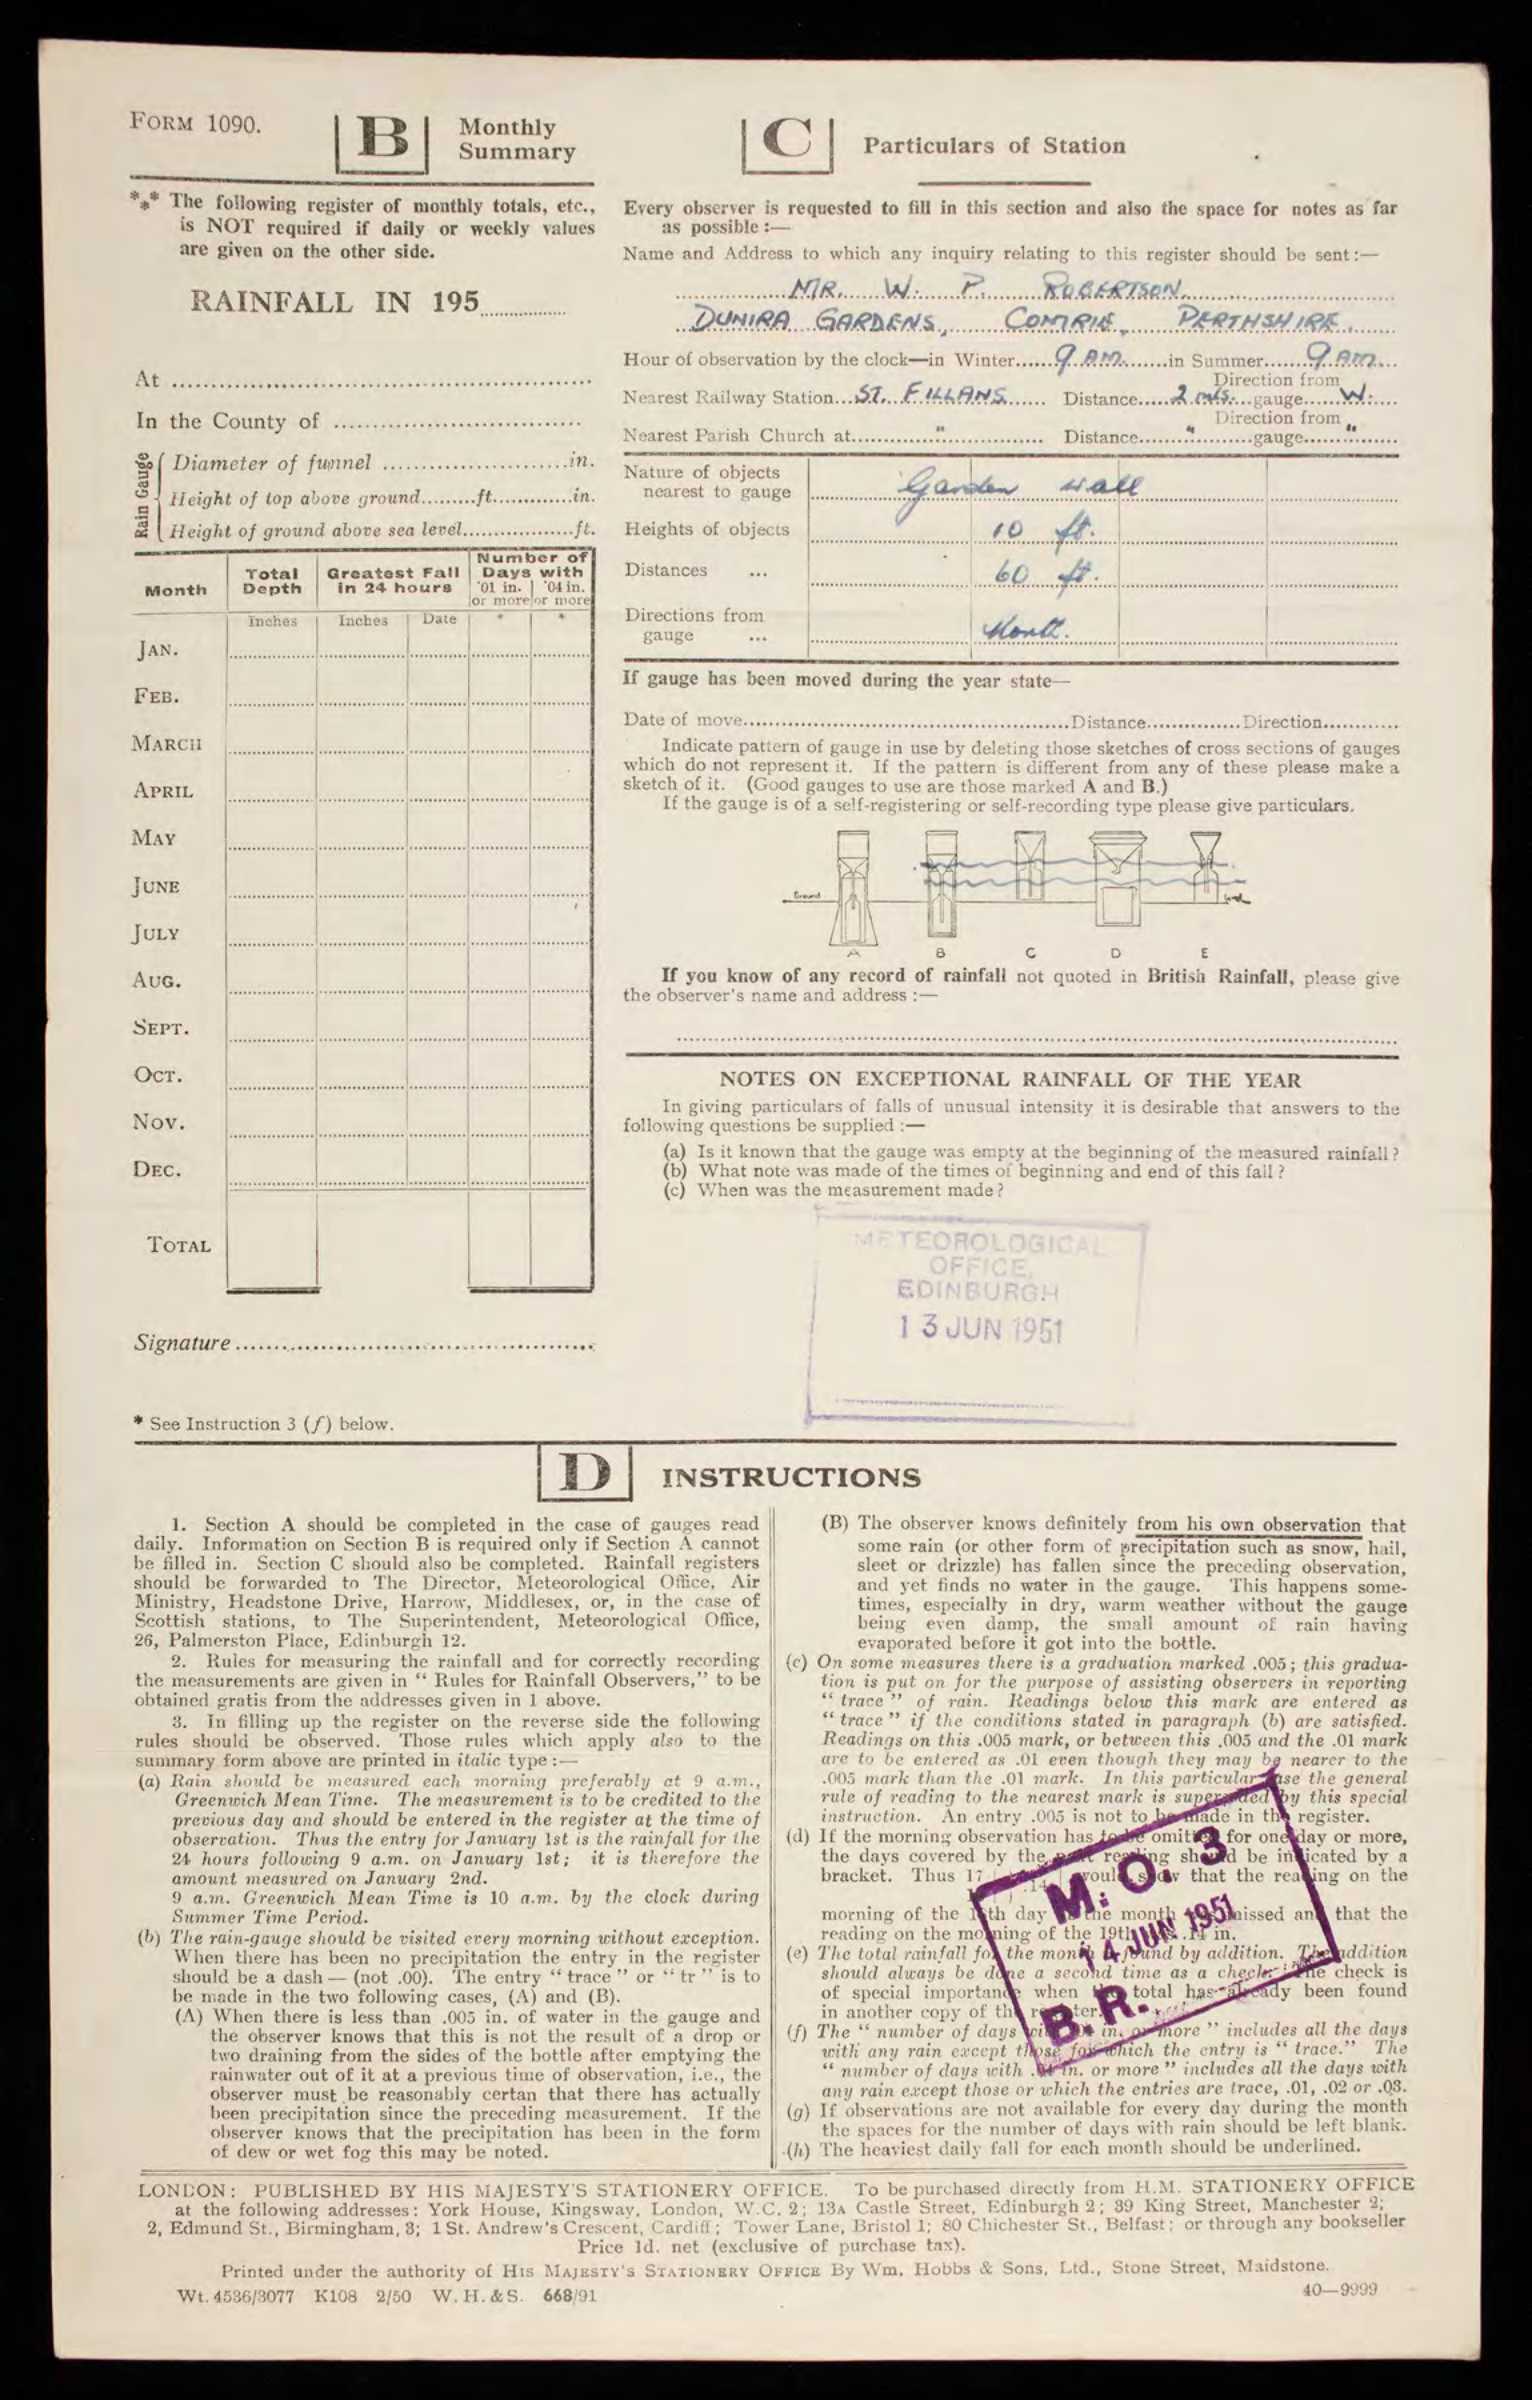 FORM 1090.
B
Monthly
Summary
*** The following register of monthly totals, etc.,
is NOT required if daily or weekly values
are given on the other side.
RAINFALL IN 195
At
In the County of
Rain Gauge
Diameter of funnel in.
Height of top above ground ft. in.
Height of ground above sea level ft.
Month
Total Depth
Greatest Fall in 24 hours
Number of Days with
·01 in. or more
·04 in. or more
Inches Inches Date * *
JAN.
FEB.
MARCH
APRIL
MAY
JUNE
JULY
AUG.
SEPT.
OCT.
NOV.
DEC.
TOTAL
Signature
* See Instruction 3 (f) below.
C
Particulars of Station
Every observer is requested to fill in this section and also the space for notes as far
as possible :—
Name and Address to which any inquiry relating to this register should be sent :—
MR. W. P. ROBERTSON
DUNIRA GARDENS, COMRIE, PERTHSHIRE.
Hour of observation by the clock—in Winter 9 AM. in Summer 9 AM.
Nearest Railway Station ST. FILLANS Distance 2 mls. Direction from gauge W.
Nearest Parish Church at " Distance " Direction from gauge "
Nature of objects
nearest to gauge Garden wall
Heights of objects 10 ft.
Distances ... 60 ft.
Directions from
gauge ... North.
If gauge has been moved during the year state—
Date of move Distance Direction
Indicate pattern of gauge in use by deleting those sketches of cross sections of gauges
which do not represent it. If the pattern is different from any of these please make a
sketch of it. (Good gauges to use are those marked A and B.)
If the gauge is of a self-registering or self-recording type please give particulars.
Ground Level
A B C D E
If you know of any record of rainfall not quoted in British Rainfall, please give
the observer's name and address :—
NOTES ON EXCEPTIONAL RAINFALL OF THE YEAR
In giving particulars of falls of unusual intensity it is desirable that answers to the
following questions be supplied :—
(a) Is it known that the gauge was empty at the beginning of the measured rainfall ?
(b) What note was made of the times of beginning and end of this fall ?
(c) When was the measurement made ?
METEOROLOGICAL
OFFICE,
EDINBURGH
13 JUN 1951
D
INSTRUCTIONS
1. Section A should be completed in the case of gauges read
daily. Information on Section B is required only if Section A cannot
be filled in. Section C should also be completed. Rainfall registers
should be forwarded to The Director, Meteorological Office, Air
Ministry, Headstone Drive, Harrow, Middlesex, or, in the case of
Scottish stations, to The Superintendent, Meteorological Office,
26, Palmerston Place, Edinburgh 12.
2. Rules for measuring the rainfall and for correctly recording
the measurements are given in “ Rules for Rainfall Observers,” to be
obtained gratis from the addresses given in 1 above.
3. In filling up the register on the reverse side the following
rules should be observed. Those rules which apply also to the
summary form above are printed in italic type :—
(a) Rain should be measured each morning preferably at 9 a.m.,
Greenwich Mean Time. The measurement is to be credited to the
previous day and should be entered in the register at the time of
observation. Thus the entry for January 1st is the rainfall for the
24 hours following 9 a.m. on January 1st; it is therefore the
amount measured on January 2nd.
9 a.m. Greenwich Mean Time is 10 a.m. by the clock during
Summer Time Period.
(b) The rain-gauge should be visited every morning without exception.
When there has been no precipitation the entry in the register
should be a dash — (not .00). The entry “ trace ” or “ tr ” is to
be made in the two following cases, (A) and (B).
(A) When there is less than .005 in. of water in the gauge and
the observer knows that this is not the result of a drop or
two draining from the sides of the bottle after emptying the
rainwater out of it at a previous time of observation, i.e., the
observer must be reasonably certan that there has actually
been precipitation since the preceding measurement. If the
observer knows that the precipitation has been in the form
of dew or wet fog this may be noted.
(B) The observer knows definitely from his own observation that
some rain (or other form of precipitation such as snow, hail,
sleet or drizzle) has fallen since the preceding observation,
and yet finds no water in the gauge. This happens some-
times, especially in dry, warm weather without the gauge
being even damp, the small amount of rain having
evaporated before it got into the bottle.
(c) On some measures there is a graduation marked .005; this gradua-
tion is put on for the purpose of assisting observers in reporting
“ trace ” of rain. Readings below this mark are entered as
“ trace ” if the conditions stated in paragraph (b) are satisfied.
Readings on this .005 mark, or between this .005 and the .01 mark
are to be entered as .01 even though they may be nearer to the
.005 mark than the .01 mark. In this particular case the general
rule of reading to the nearest mark is superseded by this special
instruction. An entry .005 is not to be made in the register.
(d) If the morning observation has to be omitted for one day or more,
the days covered by the next reading should be indicated by a
bracket. Thus 17 .14 would show that the reading on the
morning of the 18th day of the month was missed and that the
reading on the morning of the 19th was .14 in.
(e) The total rainfall for the month is found by addition. The addition
should always be done a second time as a check. The check is
of special importance when the total has already been found
in another copy of the register.
(f) The “ number of days with .01 in. or more ” includes all the days
with any rain except those for which the entry is “ trace.” The
“ number of days with .04 in. or more ” includes all the days with
any rain except those or which the entries are trace, .01, .02 or .03.
(g) If observations are not available for every day during the month
the spaces for the number of days with rain should be left blank.
(h) The heaviest daily fall for each month should be underlined.
M.O. 3
14 JUN 1951
B.R.
LONDON: PUBLISHED BY HIS MAJESTY'S STATIONERY OFFICE. To be purchased directly from H.M. STATIONERY OFFICE
at the following addresses: York House, Kingsway, London, W.C. 2; 13A Castle Street, Edinburgh 2; 39 King Street, Manchester 2;
2, Edmund St., Birmingham, 3; 1 St. Andrew's Crescent, Cardiff; Tower Lane, Bristol 1; 80 Chichester St., Belfast; or through any bookseller
Price 1d. net (exclusive of purchase tax).
Printed under the authority of HIS MAJESTY'S STATIONERY OFFICE By Wm. Hobbs & Sons, Ltd., Stone Street, Maidstone.
Wt. 4536/3077 K108 2/50 W. H. & S. 668/91
40—9999